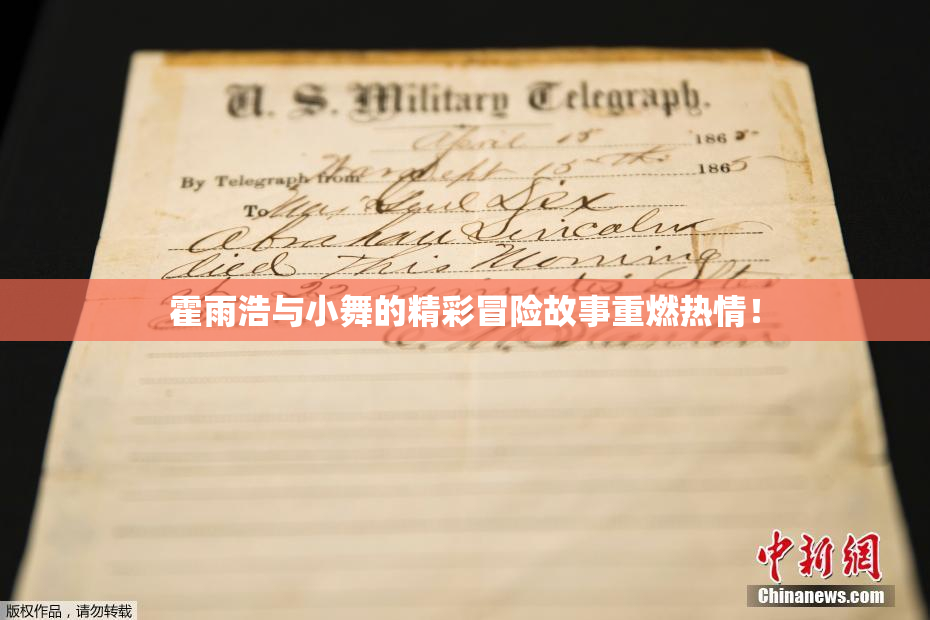 U. S. Military Telegraph.
April 15 1865
By Telegraph from War Dept 15th 1865
To Maj Genl Dix
Abraham Lincoln
died This Morning
at 22 minutes after
霍雨浩与小舞的精彩冒险故事重燃热情！
E. M. Stanton
中新网
Chinanews.com
版权作品，请勿转载